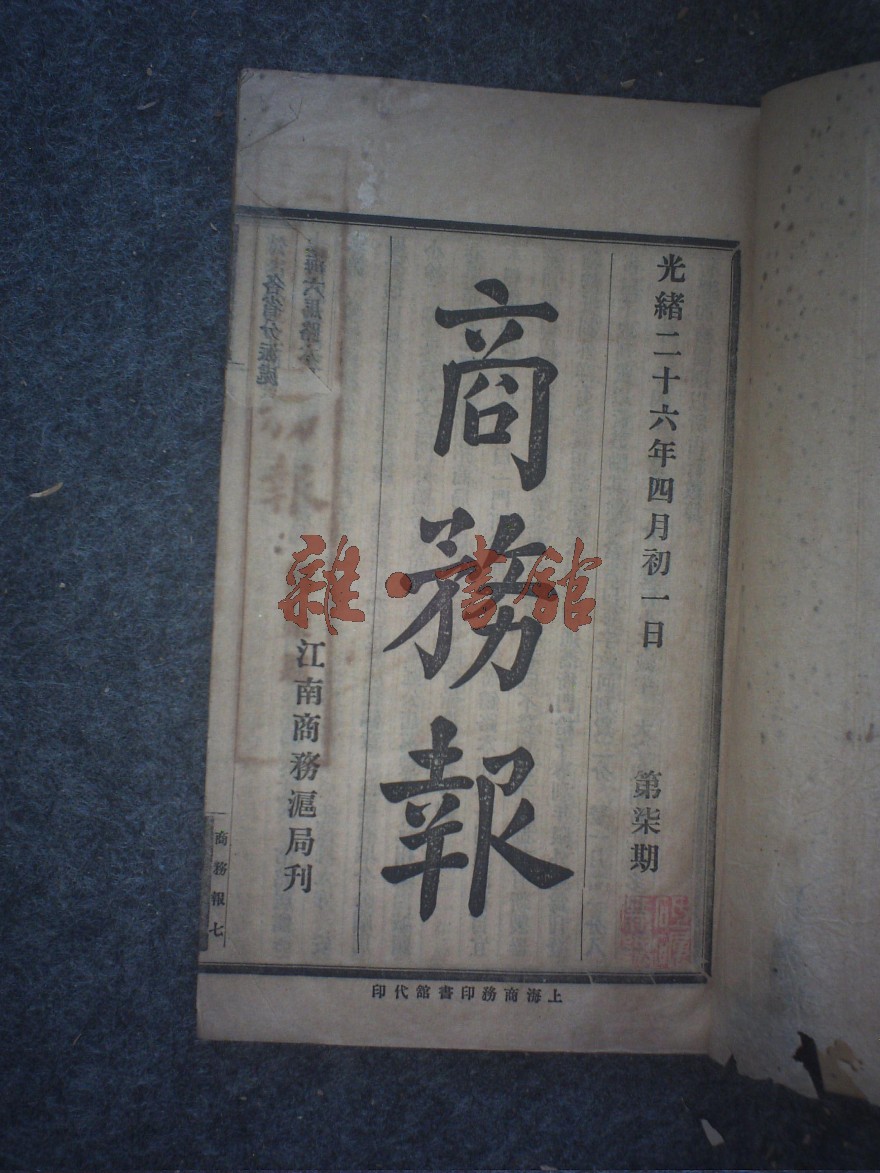 光緒二十六年四月初一日
第柒期
商務報
江南商務滬局刊
商務報 七
上海商務印書館代印
雜·書館